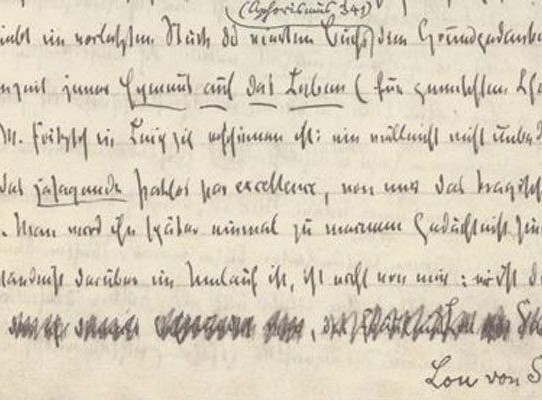 (Aphorismus 341)
giebt im vorletzten Stück des vierten Buchs den Grundgedanken
jenes Hymnus auf das Leben (für gemischten Cho
W. Fritzsch in Leipzig erschienen ist: ein vielleicht nicht unbed
das jasagende Pathos par excellence, von mir das tragisch
. Man wird ihn später einmal zu meinem Gedächtniß sin
ständniß darüber im Umlauf ist, ist nicht von mir: er ist d
Lou von S